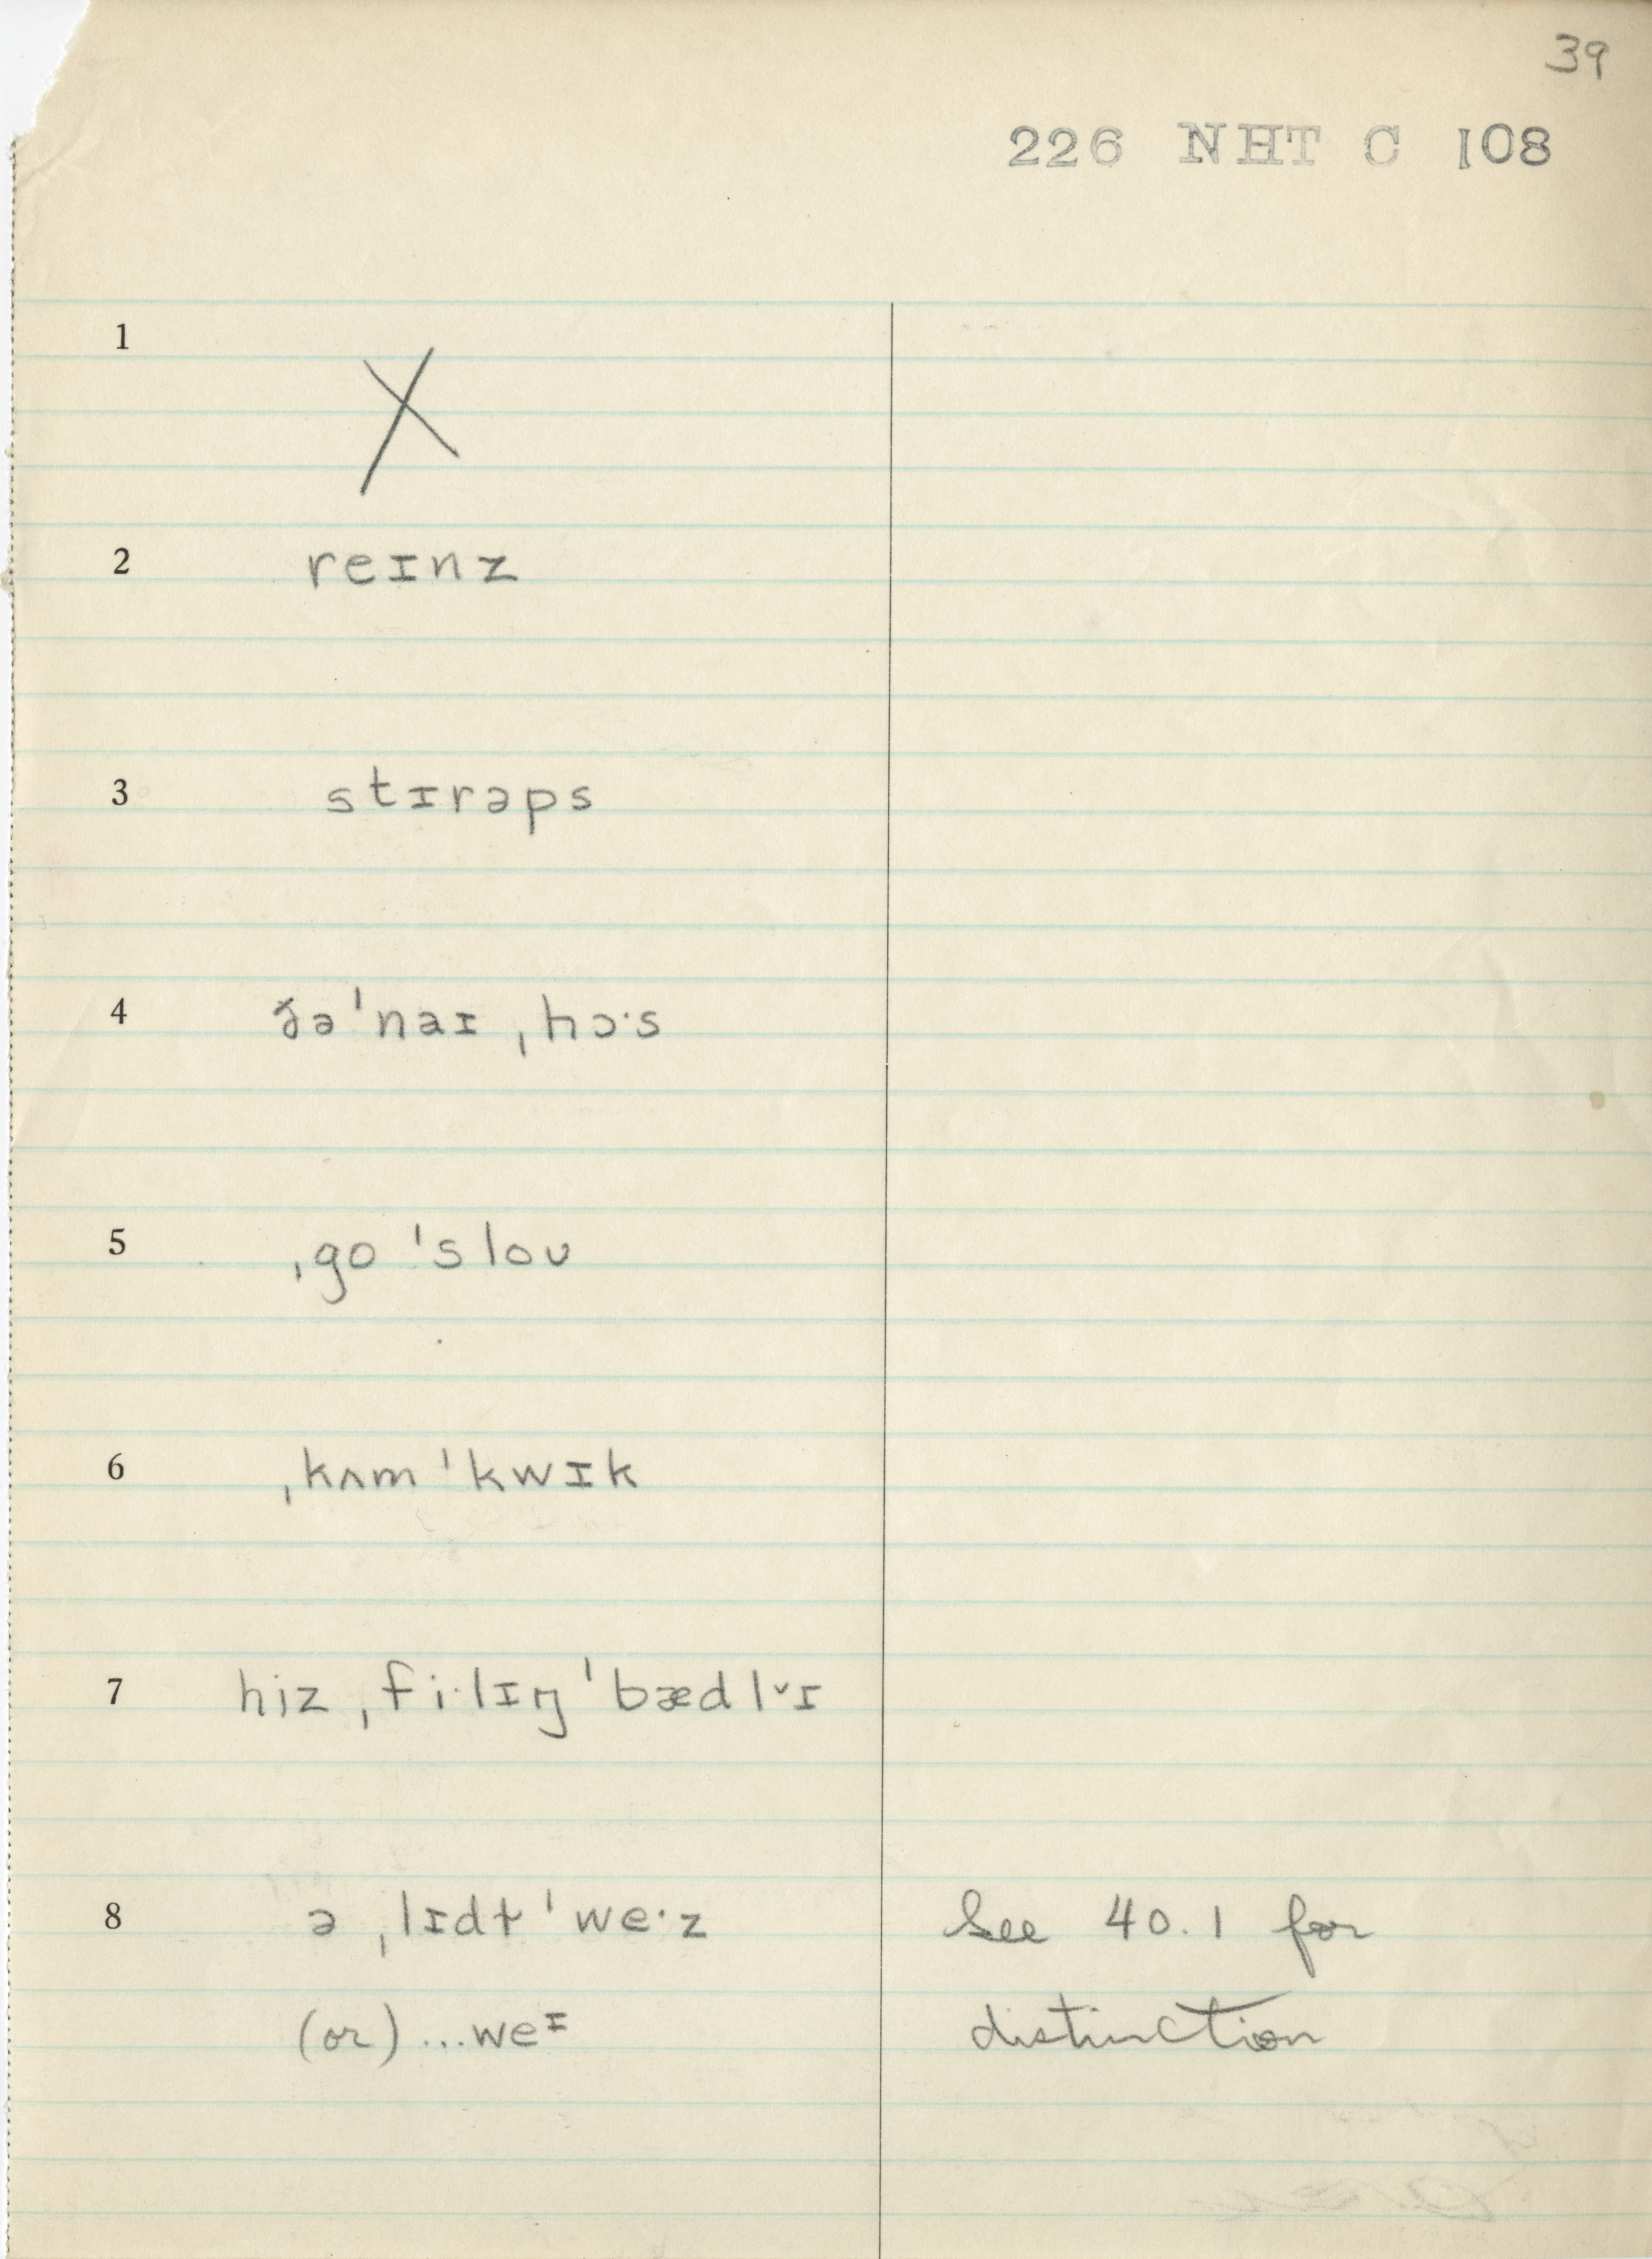 39
226 NHT C 108
1 X
2 reɪnz
3 stɪrəps
4 ðə ˈnaɪ ˌhɔ·s
5 ˌgo ˈsloʊ
6 ˌkʌm ˈkwɪk
7 hiz ˌfi·lɪŋ ˈbædlᵛɪ
8 ə ˌlɪdɫ ˈwe·z See 40.1 for
(or) ...weᶦ distinction